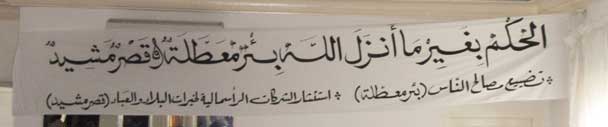 الحكم بغير ما أنزل الله بئر معطلة وقصر مشيد
* تضييع مصالح الناس (بئر معطلة) * استئثار الشركات الرأسمالية لخيرات البلاد والعباد (قصر مشيد)